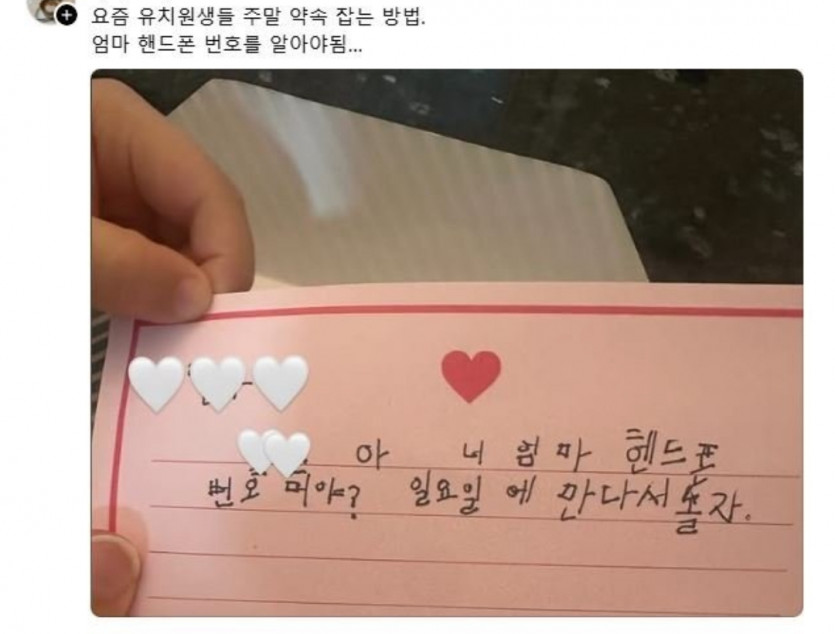 요즘 유치원생들 주말 약속 잡는 방법.
엄마 핸드폰 번호를 알아야됨...
아 너 엄마 헨드폰
번호 머야? 일요일 에 만다서놀자.